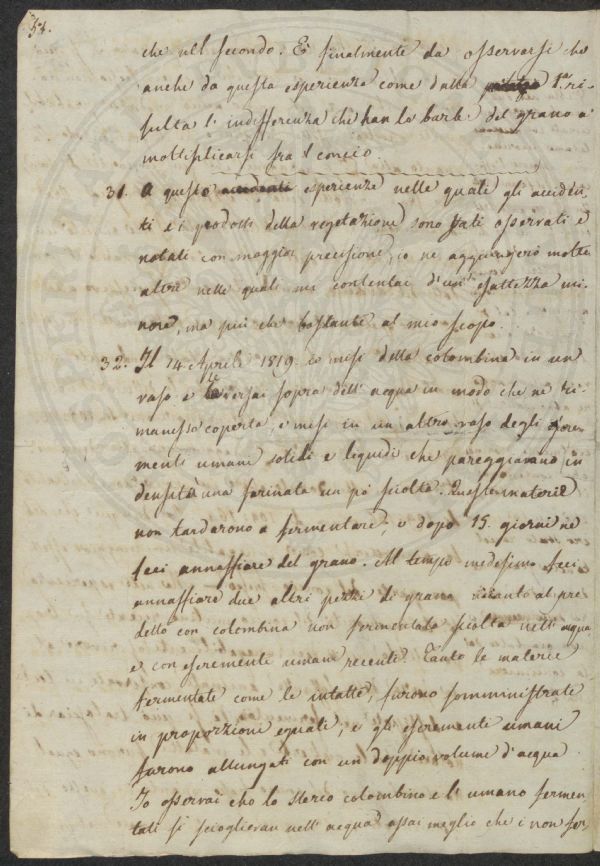 54.
che nel secondo. È finalmente da osservarsi che
anche da questa esperienza come dalla 1.a ri-
sulta l'indifferenza che han le barbe del grano a
moltiplicarsi fra 'l concio.
31. A queste esperienze nelle quali gli acciden-
ti e i prodotti della vegetazione sono stati osservati e
notati con maggior precisione, io ne aggiungerò molte
altre nelle quali mi contentai d'un' esattezza mi-
nore, ma più che bastante al mio scopo.
32. Il 14 Aprile 1819. io misi della colombina in un
vaso e le versai sopra dell'acqua in modo che ne ri-
manesse coperta, e misi in un altro vaso degli escre-
menti umani solidi e liquidi che pareggiavano in
densità una farinata un pò sciolta. Queste materie
non tardarono a fermentare, e dopo 15. giorni ne
feci annaffiare del grano. Al tempo medesimo feci
annaffiare due altri pezzi di grano accanto al pre-
detto con colombina non fermentata sciolta nell'acqua
e con escrementi umani recenti. Tanto le materie
fermentate come le intatte, furono somministrate
in proporzioni eguali, e gli escrementi umani
furono allungati con un doppio volume d'acqua.
Io osservai che lo sterco colombino e l'umano fermen-
tati si scioglievan nell'acqua assai meglio che i non fer-